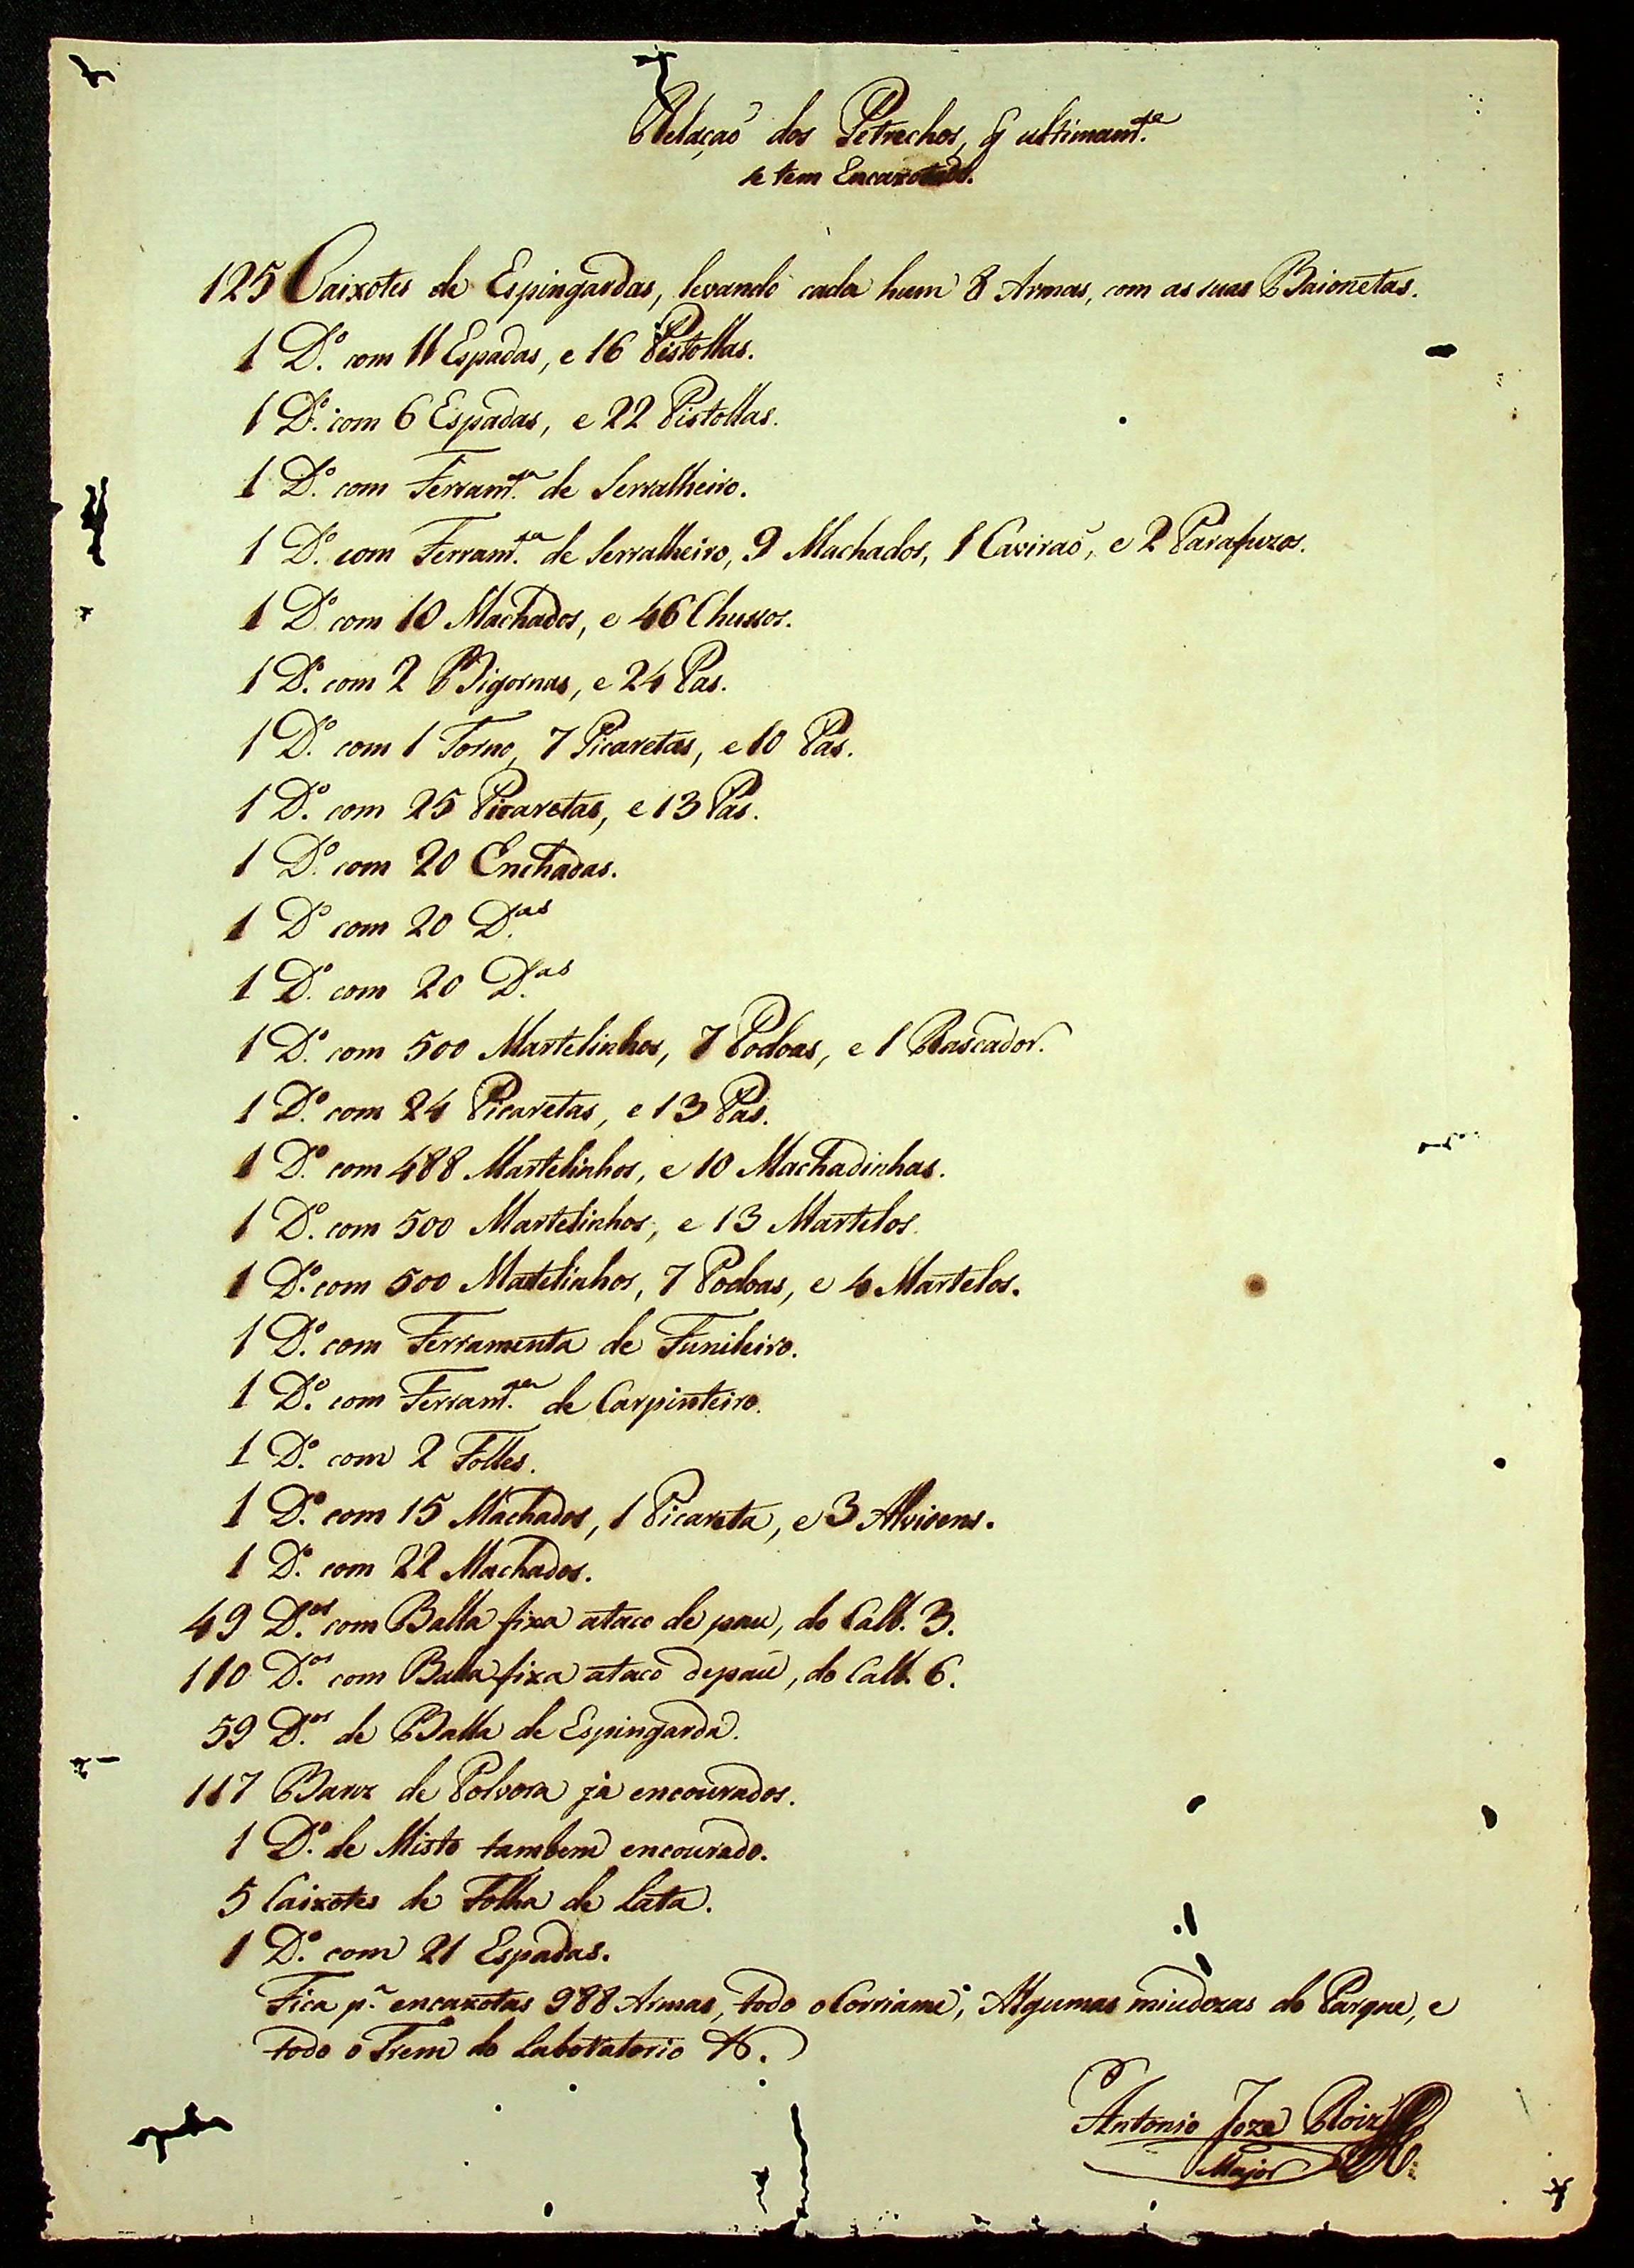 Relação dos Petrechos, q ultimam.te
se tem Encaxotado.
125 Caixotes de Espingardas, levando cada hum 8 Armas, com as suas Baionetas.
1 D.o com 11 Espadas, e 16 Pistollas.
1 D.o com 6 Espadas, e 22 Pistollas.
1 D.o com Ferram.ta de Serralheiro.
1 D.o com Ferram.ta de Serralheiro, 9 Machados, 1 Cavirão, e 2 Parafuzos.
1 D.o com 10 Machados, e 46 Chussos.
1 D.o com 2 Bigornas, e 24 Pas.
1 D.o com 1 Torno, 7 Picaretas, e 10 Pás.
1 D.o com 25 Picaretas, e 13 Pás.
1 D.o com 20 Enchadas.
1 D.o com 20 D.as
1 D.o com 20 D.as
1 D.o com 500 Martelinhos, 7 Podoas, e 1 Rascador.
1 D.o com 24 Picaretas, e 13 Pás.
1 D.o com 488 Martelinhos, e 10 Machadinhas.
1 D.o com 500 Martelinhos, e 13 Martelos.
1 D.o com 500 Matelinhos, 7 Podoas, e 4 Martelos.
1 D.o com Ferramenta de Funileiro.
1 D.o com Ferram.ta de Carpinteiro.
1 D.o com 2 Folles.
1 D.o com 15 Machados, 1 Picareta, e 3 Alvioens.
1 D.o com 22 Machados.
49 D.os com Balla fixa ataco de pau, do Calb. 3.
110 D.os com Balla fixa ataco depau, do Calb. 6.
59 D.os de Balla de Espingarda.
117 Barız de Polvora já encourados.
1 D.o de Misto tambem encourado.
5 Caixotes de Folha de Lata.
1 D.o com 21 Espadas.
Fica p.a encaxotas 988 Armas, todo o Corriame, Algumas miudezas do Parque, e
todo o Trem do Laboratorio &.
Antonio Joze Roiz
Major